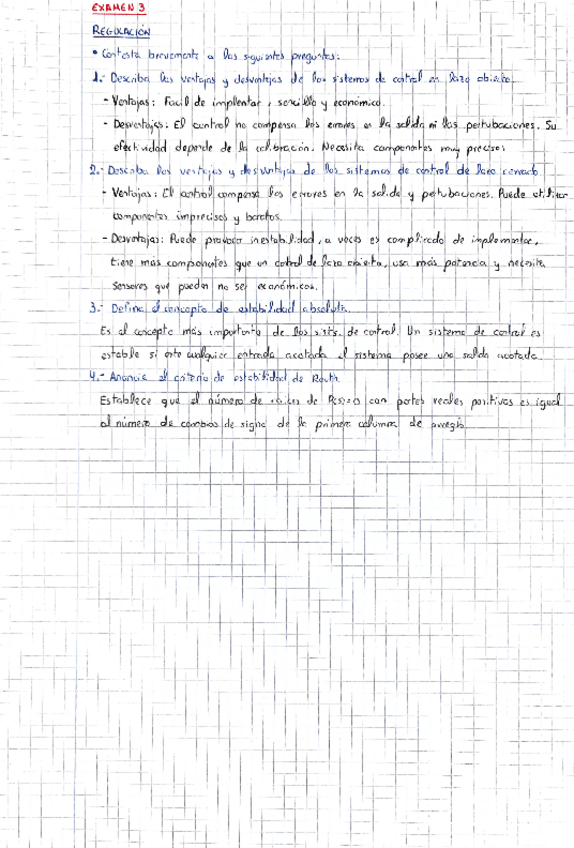 EXAMEN 3
REGULACIÓN
• Contesta brevemente a las siguientes preguntas:
1.- Describa las ventajas y desventajas de los sistemas de control en lazo abierto.
- Ventajas: Facil de implentar, sencillo y económico.
- Desventajas: El control no compensa los errores en la salida ni las pertubaciones. Su
efectividad depende de la calibración. Necesita componentes muy precisos
2.- Describa las ventajas y desventajas de los sistemas de control de lazo cerrado
- Ventajas: El control compensa los errores en la salida y pertubaciones. Puede utilizar
componentes imprecisos y baratos.
- Desventajas: Puede provocar inestabilidad, a veces es complicado de implementar,
tiene más componentes que un control de lazo abierto, usa más potencia y necesita
sensores que pueden no ser económicos.
3.- Defina el concepto de estabilidad absoluta.
Es el concepto más importante de los sists. de control. Un sistema de control es
estable si ante cualquier entrada acotada el sistema posee una salida acotada.
4.- Anuncie el criterio de estabilidad de Routh.
Establece que el número de raíces de con partes reales positivas es igual
al número de cambios de signo de la primera columna de arreglo.